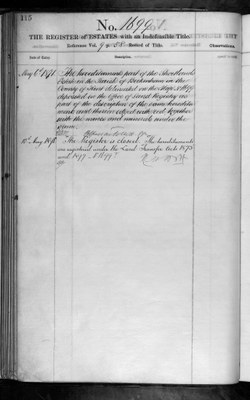 115
No. 1699
THE REGISTER of ESTATES with an Indefeasible Title.
Reference Vol. Record of Title.
Observations
Date of Entry. Description.
May 6th 1871 The hereditaments part of the
Estate in the Parish of Beckenham in the
County of Kent delineated on the Map No. 1699
deposited in the Office of Land Registry as
part of the description of the same heredita
ments and therein edged with red Together
with the mines and minerals under the
same
10th Aug 1898 The Register is closed. The hereditaments
are registered under the Land Transfer Acts 1875
and 1897